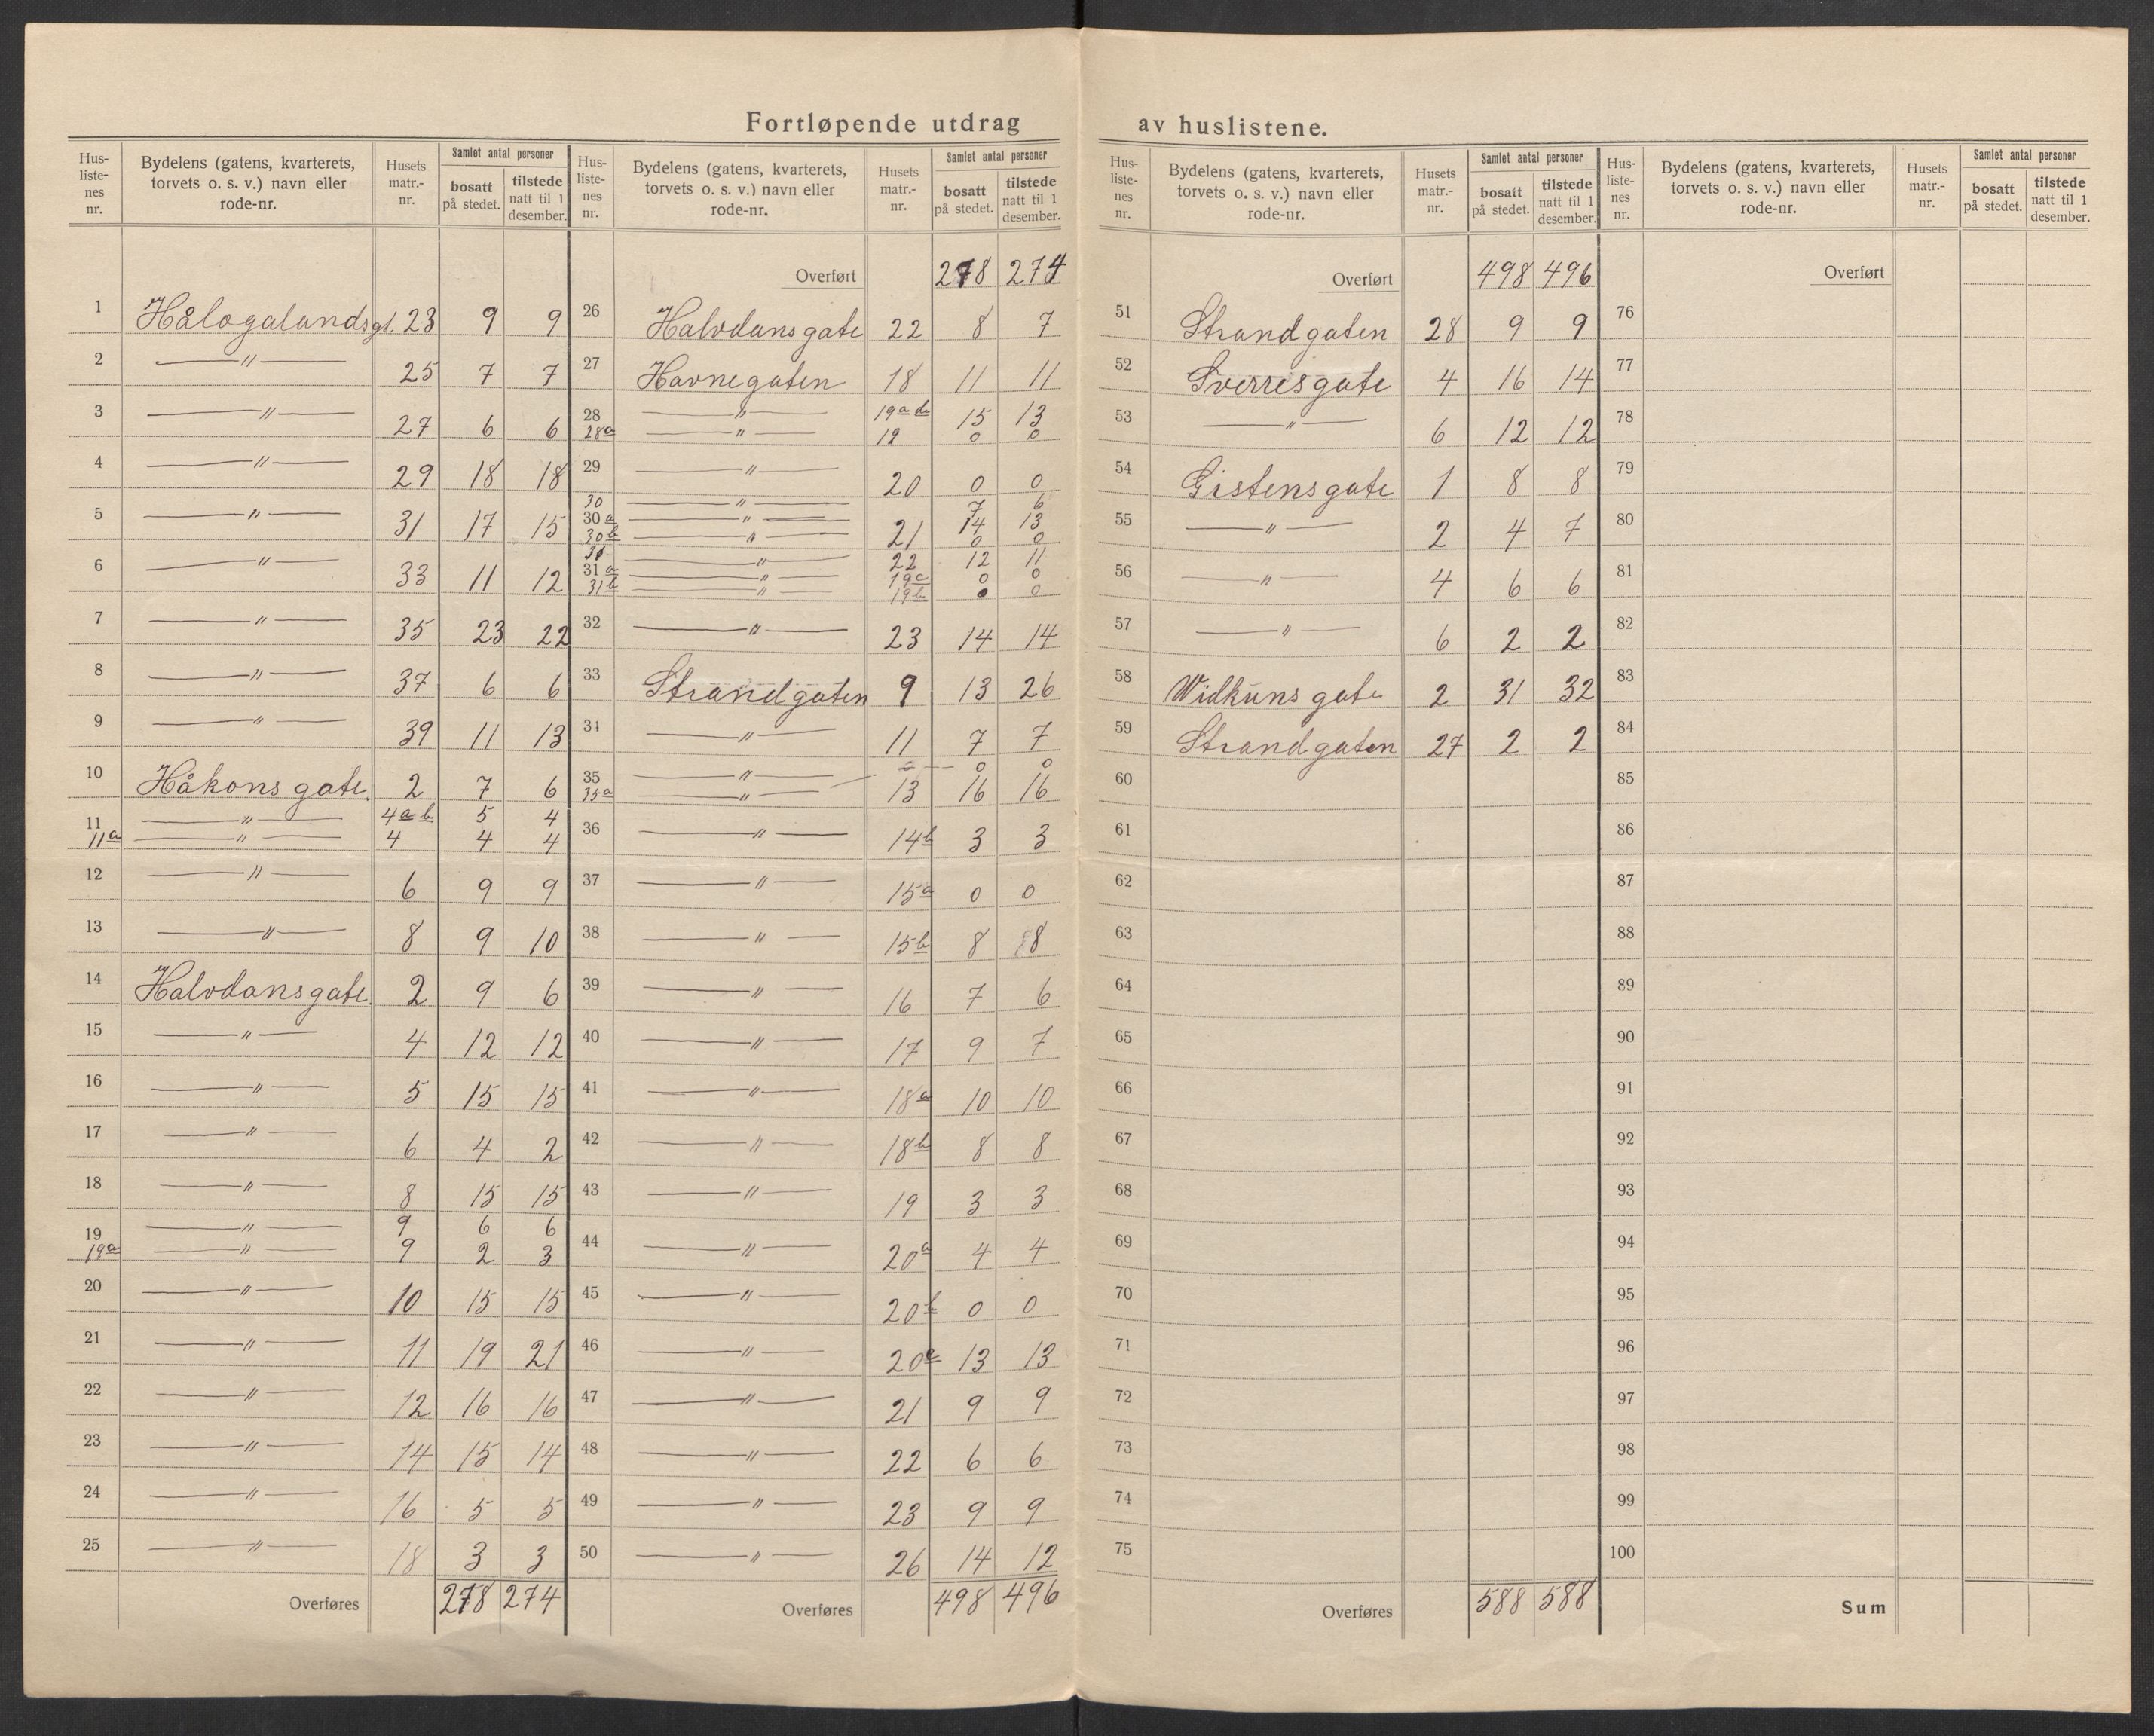 Fortløpende utdrag av huslistene.
Hus-liste-nes nr. | Bydelens (gatens, kvarterets, torvets o. s. v.) navn eller rode-nr. | Husets matr.-nr. | Samlet antal personer | bosatt på stedet. | tilstede natt til 1 desember.
1 Hålogalandsgt. 23 9 9
2 —"— 25 7 7
3 —"— 27 6 6
4 —"— 29 18 18
5 —"— 31 17 15
6 —"— 33 11 12
7 —"— 35 23 22
8 —"— 37 6 6
9 —"— 39 11 13
10 Håkons gate 2 7 6
11 —"— 4a b 5 4
11a —"— 4 4 4
12 —"— 6 9 9
13 —"— 8 9 10
14 Halvdansgate 2 9 6
15 —"— 4 12 12
16 —"— 5 15 15
17 —"— 6 4 2
18 —"— 8 15 15
19 —"— 9 6 6
19a —"— 9 2 3
20 —"— 10 15 15
21 —"— 11 19 21
22 —"— 12 16 16
23 —"— 14 15 14
24 —"— 16 5 5
25 —"— 18 3 3
Overføres 278 274
Hus-liste-nes nr. | Bydelens (gatens, kvarterets, torvets o. s. v.) navn eller rode-nr. | Husets matr.-nr. | Samlet antal personer | bosatt på stedet. | tilstede natt til 1 desember.
Overført 278 274
26 Halvdansgate 22 8 7
27 Havnegaten 18 11 11
28 —"— 19a 15 13
28a —"— 19 0 0
29 —"— 20 0 0
30 —"— 7 6
30a —"— 14 13
30b —"— 21 0 0
31 —"— 22 12 11
31a —"— 19a 0 0
31b —"— 19b 0 0
32 —"— 23 14 14
33 Strandgaten 9 13 26
34 —"— 11 7 7
35 —"— 0 0
35a —"— 13 16 16
36 —"— 14b 3 3
37 —"— 15a 0 0
38 —"— 15b 8 8
39 —"— 16 7 6
40 —"— 17 9 7
41 —"— 18a 10 10
42 —"— 18b 8 8
43 —"— 19 3 3
44 —"— 20a 4 4
45 —"— 20b 0 0
46 —"— 20c 13 13
47 —"— 21 9 9
48 —"— 22 6 6
49 —"— 23 9 9
50 —"— 26 14 12
Overføres 498 496
Hus-liste-nes nr. | Bydelens (gatens, kvarterets, torvets o. s. v.) navn eller rode-nr. | Husets matr.-nr. | Samlet antal personer | bosatt på stedet. | tilstede natt til 1 desember.
Overført 498 496
51 Strandgaten 28 9 9
52 Sverresgate 4 16 14
53 —"— 6 12 12
54 Gistensgate 1 8 8
55 —"— 2 4 7
56 —"— 4 6 6
57 —"— 6 2 2
58 Widkuns gate 2 31 32
59 Strandgaten 27 2 2
60
61
62
63
64
65
66
67
68
69
70
71
72
73
74
75
Overføres 588 588
Hus-liste-nes nr. | Bydelens (gatens, kvarterets, torvets o. s. v.) navn eller rode-nr. | Husets matr.-nr. | Samlet antal personer | bosatt på stedet. | tilstede natt til 1 desember.
Overført
76
77
78
79
80
81
82
83
84
85
86
87
88
89
90
91
92
93
94
95
96
97
98
99
100
Sum